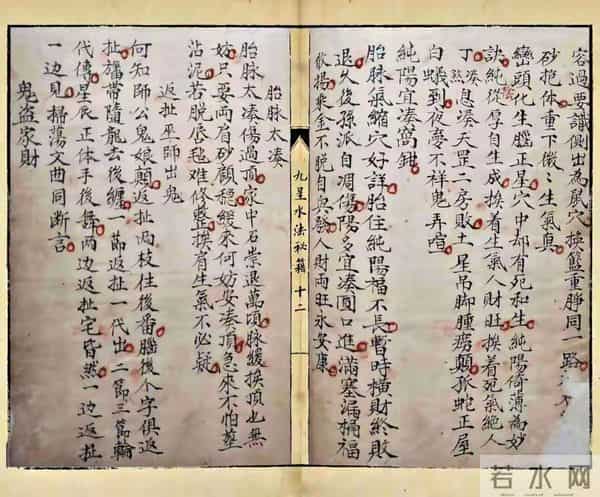 容過要識側出為鼠穴換籃重脝同一路
砂抱体重下微〻生氣真
巒頭化生腦正星穴中却有死和生純陽倚薄為妙
訣純從厚自生成挨着生氣人財旺挨着死氣絕人
丁息凑天罡二房敗土星吊脚腫癆顛孤蛇正屋
白蟻到夜夢不祥鬼弄喧
純陽宜凑窩鉗
胎脉氣縮穴好詳胎住純陽福不長暫時橫財終敗
退久後孫派自凋傷陽多宜凑圓口進滿塞漏桶福
散揚乘金不脫自與發人財両旺永安康
九星水法秘籍 十二
胎脉太凑
胎脉太凑傷過頂家中石崇退萬頃脉緩挨頂也無
妨只要両有砂顧穩緩來何妨安凑頂急來不怕塟
沾泥若脫唇毬难修整挨有生氣不必疑
返扯巫師出鬼
何知師公鬼娘顛返扯両枝住後番腦後个字俱返
扯旛帶隨龍去後纏一莭返扯一代出二莭三莭輪
代傳星辰正体手後舞両边返扯宅皆然一边返扯
一边見掃蕩文曲同断言
鬼盗家財
若水网